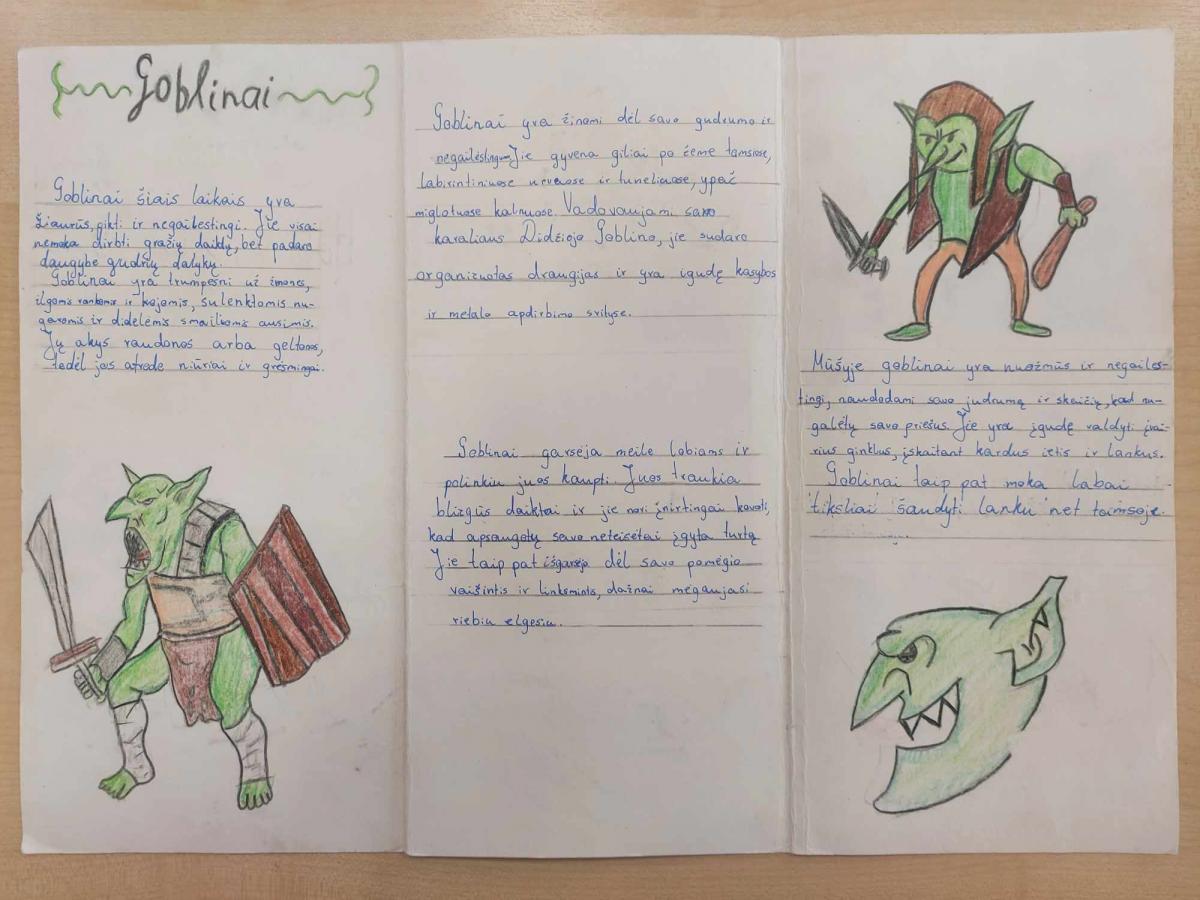 Goblinai
Goblinai šiais laikais yra
žiaurūs, pikti ir negailestingi. Jie visai
nemoka dirbti gražių daiktų, bet padaro
daugybę gudrių dalykų.
Goblinai yra trumpesni už žmones,
ilgomis rankomis ir kojomis, sulenktomis nu-
garomis ir didelėmis smailiomis ausimis.
Jų akys raudonos arba geltonos,
todėl jos atrodo niūriai ir grėsmingai.
Goblinai yra žinomi dėl savo gudrumo ir
negailėstingumo. Jie gyvena giliai po žeme tamsiose,
labirintiniuose urvuose ir tuneliuose, ypač
miglotuose kalnuose. Vadovaujami savo
karaliaus Didžiojo Goblino, jie sudaro
organizuotas draugijas ir yra įgudę kasybos
ir metalo apdirbimo srityse.
Goblinai garsėja meile lobiams ir
polinkiu juos kaupti. Juos traukia
blizgūs daiktai ir jie nori įnirtingai kovoti,
kad apsaugotų savo neteisėtai įgytą turtą
Jie taip pat išgarsėja dėl savo pomėgio
vaišintis ir linksmintis, dažnai mėgaujasi
riebiu elgesiu.
Mūšyje goblinai yra nuožmūs ir negailes-
tingi, naudodami savo judrumą ir skaičių, kad nu-
galėtų savo priešus. Jie yra įgudę valdyti įvai-
rius ginklus, įskaitant kardus ietis ir lankus.
Goblinai taip pat moka labai
tiksliai šaudyti lanku net tamsoje.